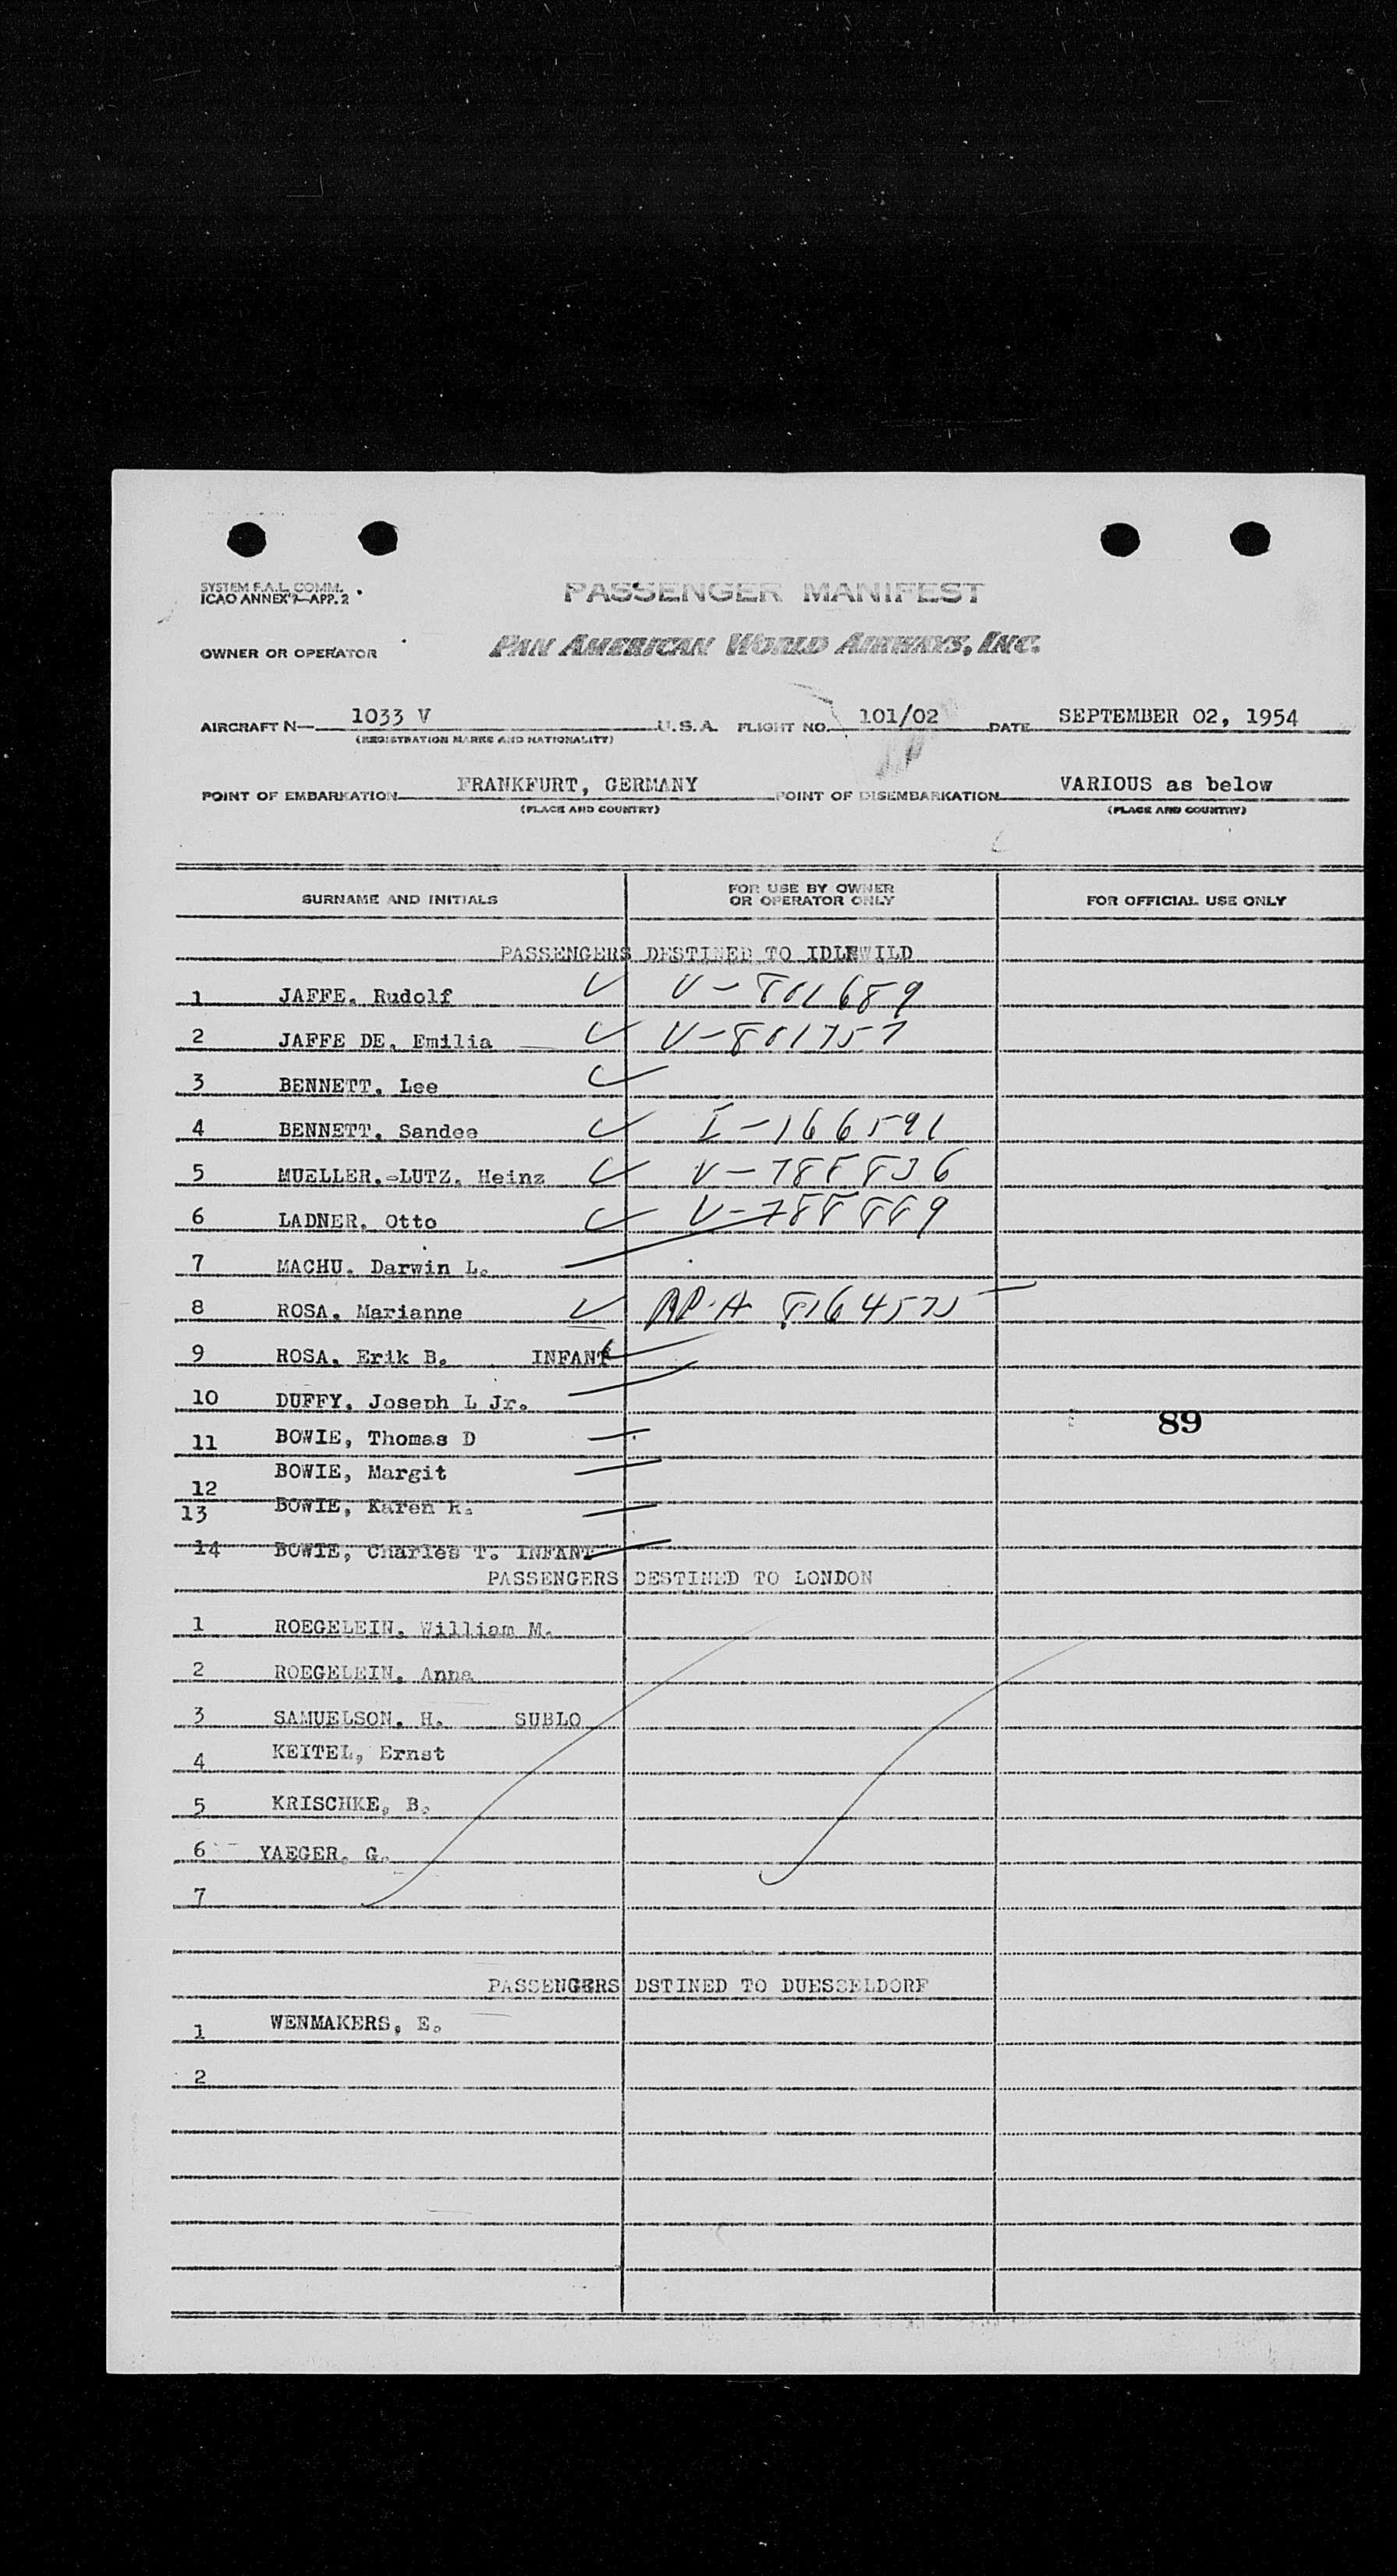 SYSTEM F.A.L. COMM.
ICAO ANNEX 9—APP. 2
PASSENGER MANIFEST
OWNER OR OPERATOR
PAN AMERICAN WORLD AIRWAYS, INC.
AIRCRAFT N— 1033 V U.S.A. FLIGHT NO. 101/02 DATE SEPTEMBER 02, 1954
(REGISTRATION MARKS AND NATIONALITY)
POINT OF EMBARKATION FRANKFURT, GERMANY POINT OF DISEMBARKATION VARIOUS as below
(PLACE AND COUNTRY) (PLACE AND COUNTRY)
SURNAME AND INITIALS FOR USE BY OWNER OR OPERATOR ONLY FOR OFFICIAL USE ONLY
PASSENGERS DESTINED TO IDLEWILD
1 JAFFE, Rudolf V-801689
2 JAFFE DE, Emilia V-801757
3 BENNETT, Lee
4 BENNETT, Sandee I-166591
5 MUELLER,-LUTZ, Heinz V-788836
6 LADNER, Otto V-788889
7 MACHU, Darwin L.
8 ROSA, Marianne
9 ROSA, Erik B. INFANT
10 DUFFY, Joseph L Jr.
89
11 BOWIE, Thomas D
12 BOWIE, Margit
13 BOWIE, Karen R.
14 BOWIE, Charles T. INFANT
PASSENGERS DESTINED TO LONDON
1 ROEGELEIN, William M.
2 ROEGELEIN, Anna
3 SAMUELSON, H. SUBLO
4 KEITEL, Ernst
5 KRISCHKE, B.
6 YAEGER, G.
7
PASSENGERS DSTINED TO DUESSELDORF
1 WENMAKERS, E.
2